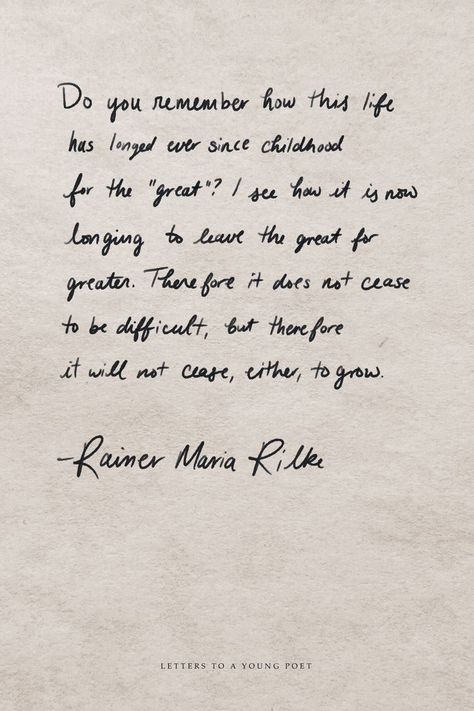 Do you remember how this life
has longed ever since childhood
for the "great"? I see how it is now
longing to leave the great for
greater. Therefore it does not cease
to be difficult, but therefore
it will not cease, either, to grow.
-Rainer Maria Rilke
LETTERS TO A YOUNG POET